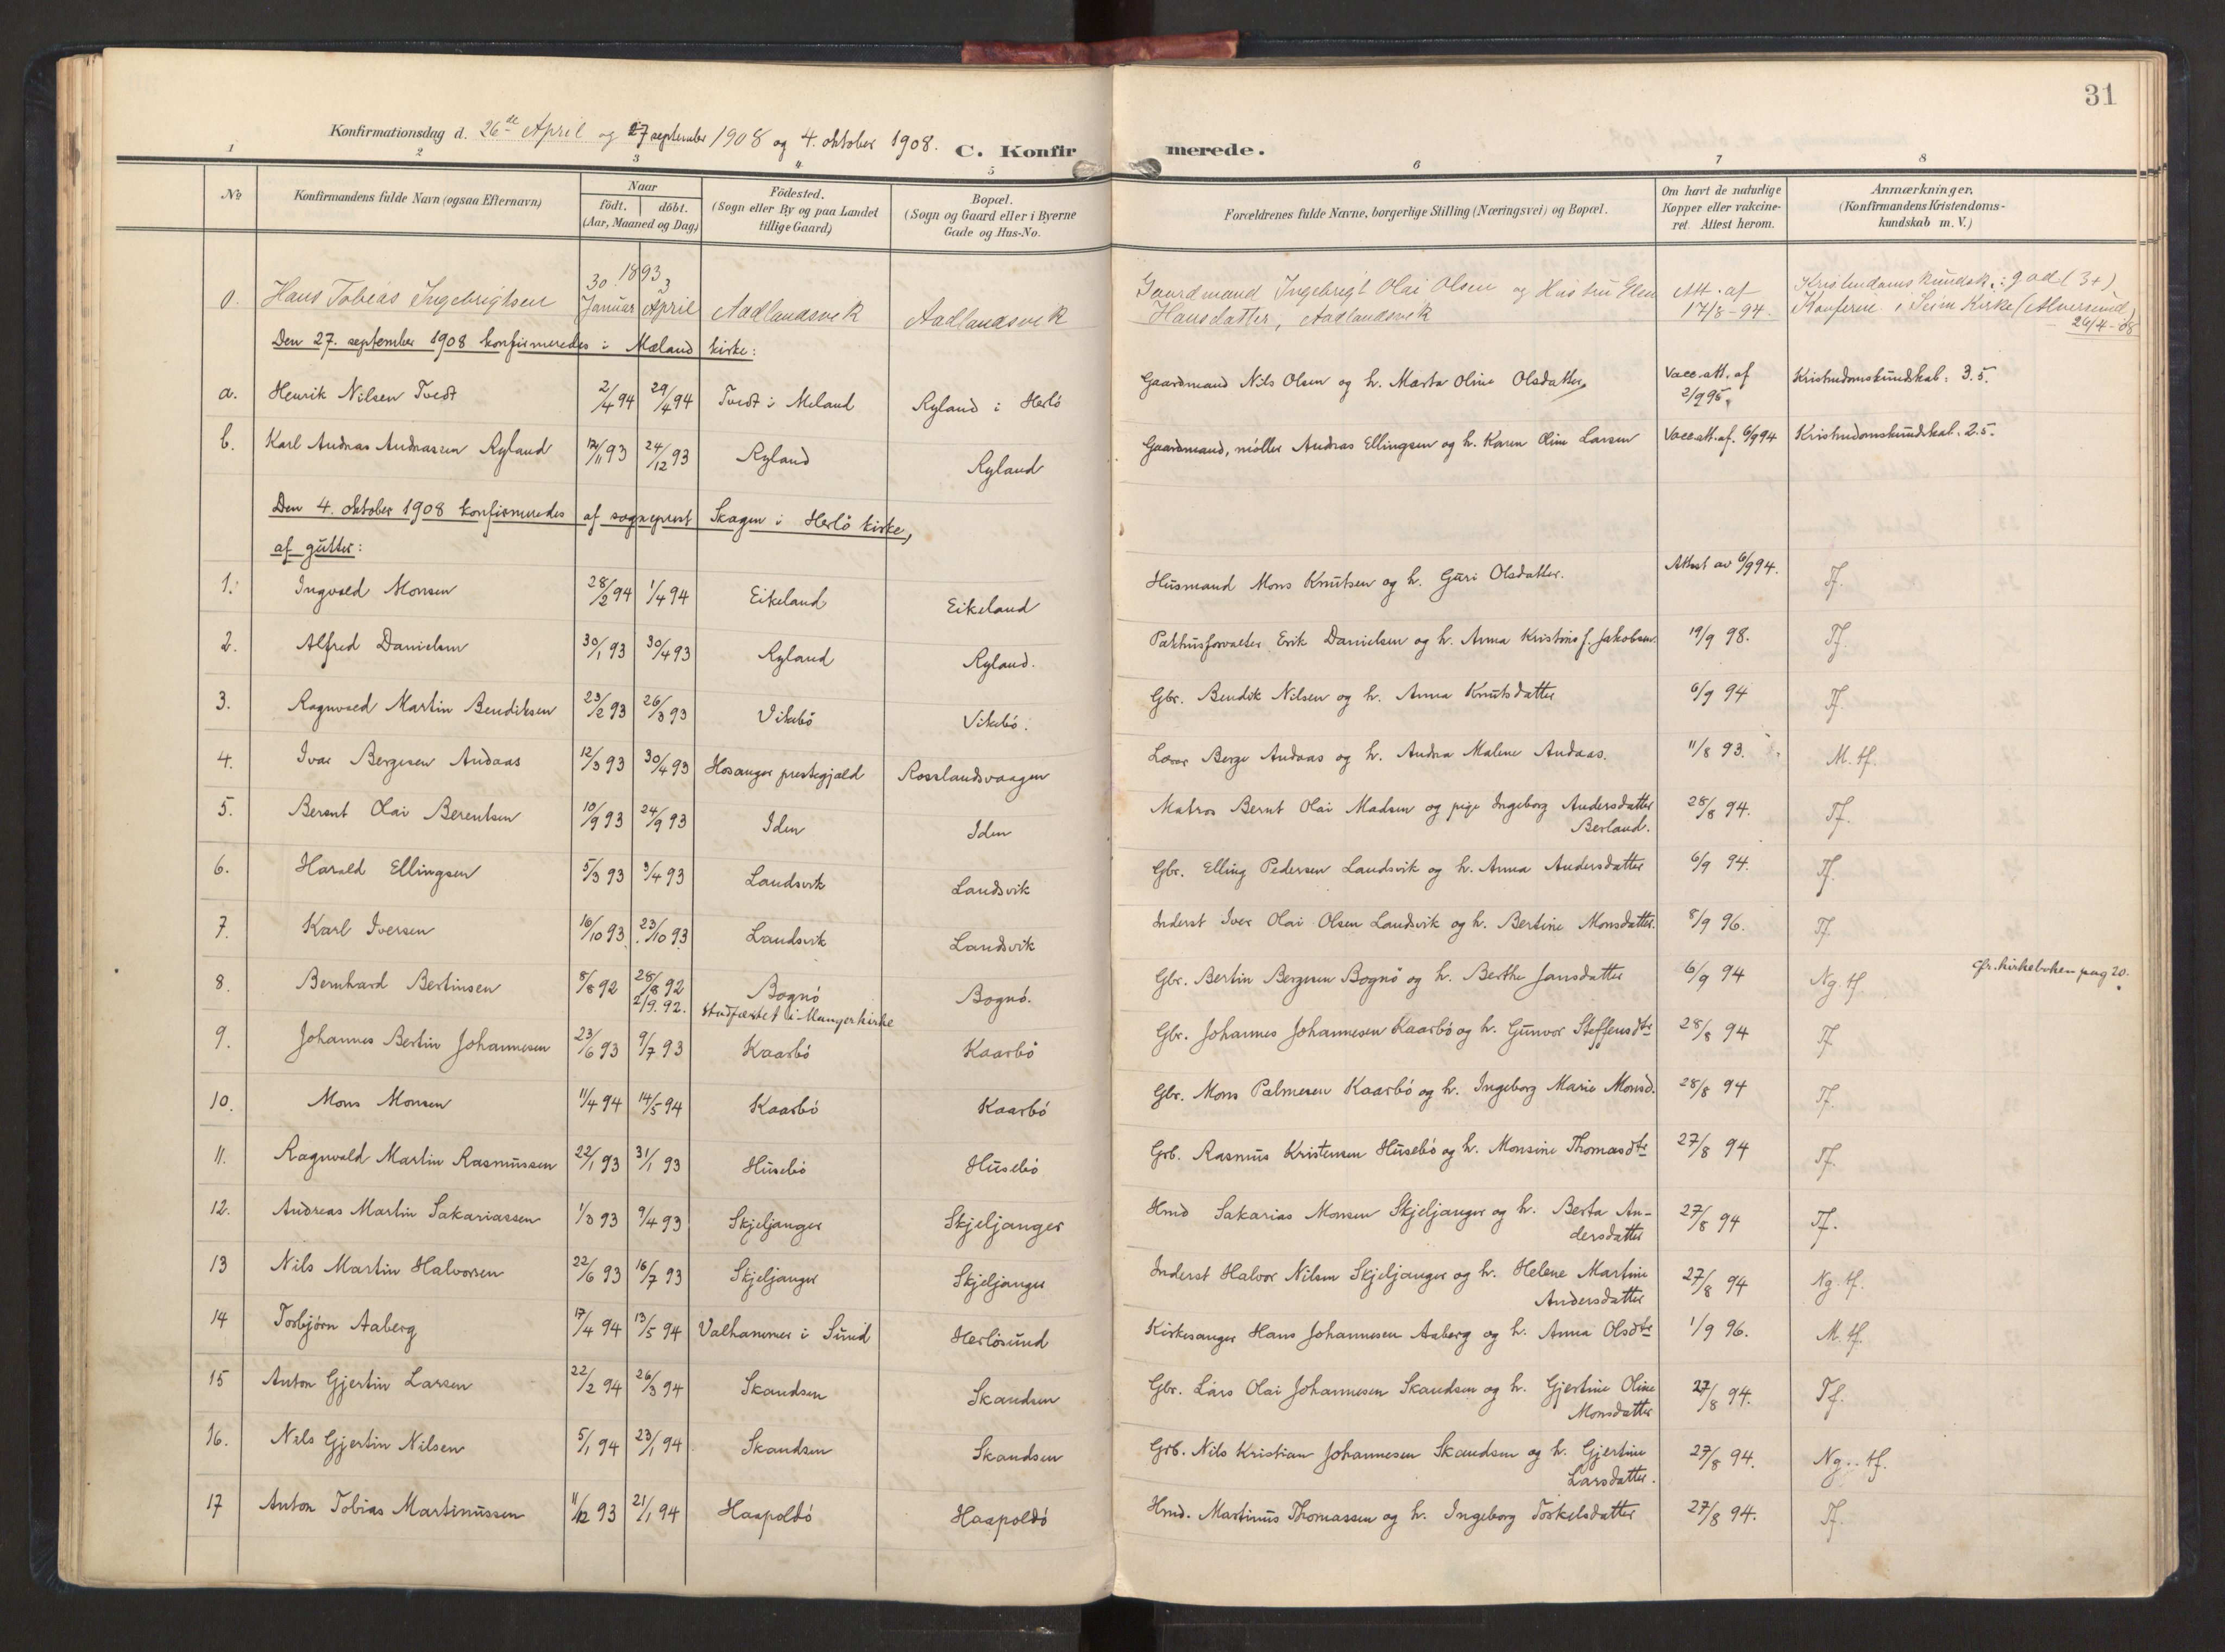 31
Konfirmationsdag d. 26de April og 27 september 1908 og 4. oktober 1908.
C. Konfirmerede.
1 2 3 4 5 6 7 8
No
Konfirmandens fulde Navn (ogsaa Efternavn)
Naar
födt. döbt.
(Aar, Maaned og Dag)
Födested.
(Sogn eller By og paa Landet
tillige Gaard)
Bopæl.
(Sogn og Gaard eller i Byerne
Gade og Hus-No.
Forældrenes fulde Navne, borgerlige Stilling (Næringsvei) og Bopæl.
Om havt de naturlige
Kopper eller vakcine-
ret. Attest herom.
Anmærkninger.
(Konfirmandens Kristendoms-
kundskab m. V.)
0. Hans Tobias Ingebrigtsen 1893 30 Januar 3 April Aadlandsvik Aadlandsvik Gaardmand Ingebrigt Olai Olsen og Hustru Elen Att. af Kristendomskundsk.: god (3+)
Hansdatter, Aadlandsvik 17/8-94. Konfirm. i Seim Kirke (Alversund)
26/4-08
Den 27. september 1908 konfirmeredes i Mæland kirke:
a. Henrik Nilsen Tvedt 2/4 94 29/4 94 Tvedt i Meland Ryland i Herlö Gaardmand Nils Olsen og h. Marta Oline Olsdatter. Vacc.att. af 2/9 95. Kristendomskundskab: 3.5.
b. Karl Andreas Andreassen Ryland 17/11 93 24/12 93 Ryland Ryland Gaardmand, møller Andreas Ellingsen og h. Karen Oline Larsen Vacc.att.af. 6/9 94 Kristendomskundskab. 2.5.
Den 4. oktober 1908 konfirmeredes af sogneprest Skagen i Herlö kirke,
af gutter:
1. Ingvald Monsen 28/2 94 1/4 94 Eikeland Eikeland Husmand Mons Knutsen og h. Guri Olsdatter. Attest av 6/9 94. Tf.
2. Alfred Danielsen 30/1 93 30/4 93 Ryland Ryland. Pakhusforvalter Erik Danielsen og h. Anna Kristine f. Jakobsen. 19/9 98. Tf.
3. Ragnvald Martin Bendiksen 23/2 93 26/3 93 Vikebö Vikebö. Gbr. Bendik Nilsen og h. Anna Knutsdatter 6/9 94 Tf.
4. Ivar Bergesen Andaas 12/3 93 30/4 93 Hosanger prestegjæld Rosslandsvaagen Lærer Berge Andaas og h. Andrea Malene Andaas. 11/8 93. M. tf.
5. Berent Olai Berentsen 10/9 93 24/9 93 Iden Iden Matros Bernt Olai Madsen og pige Ingeborg Andersdatter 28/8 94. Tf.
Berland.
6. Harald Ellingsen 5/3 93 3/4 93 Landsvik Landsvik Gbr. Elling Pedersen Landsvik og h. Anna Andersdatter 6/9 94. Tf.
7. Karl Iversen 16/10 93 23/10 93 Landsvik Landsvik Inderst Iver Olai Olsen Landsvik og h. Bertine Monsdatter. 8/9 96. Tf
8. Bernhard Bertinsen 8/8 92 28/8 92 Bognö Bognö. Gbr. Bertin Bergesen Bognö og h. Berthe Jansdatter 6/9 94 Ng. tf. cfr. kirkeboken pag 20.
2/9. 92. Stadfæstet i Manger kirke
9. Johannes Bertin Johannesen 23/6 93 9/7 93 Kaarbö Kaarbö Gbr. Johannes Johannesen Kaarbö og h. Gunvor Steffensdtr 28/8 94 Tf
10. Mons Monsen 11/4 94 14/5 94 Kaarbö Kaarbö Gbr. Mons Palmesen Kaarbö og h. Ingeborg Marie Monsd. 28/8 94 Tf.
11. Ragnvald Martin Rasmussen 22/1 93 31/1 93 Husebö Husebö Grb. Rasmus Kristensen Husebö og h. Monsine Thomasdtr 27/8 94 Tf.
12. Andreas Martin Sakariassen 1/3 93 9/4 93 Skjeljanger Skjeljanger Hmd Sakarias Monsen Skjeljanger og h. Berta An- 27/8 94 Tf.
dersdatter
13 Nils Martin Halvorsen 22/6 93 16/7 93 Skjeljanger Skjeljanger Inderst Halvor Nilsen Skjeljanger og h. Helene Martine 27/8 94 Ng. tf.
Andersdatter
14 Torbjørn Aaberg 17/4 94 13/5 94 Valhammer i Sund Herlösund Kirkesanger Hans Johannesen Aaberg og h. Anna Olsdtr 1/9 96. M. tf.
15 Anton Gjertin Larsen 22/2 94 26/3 94 Skandsen Skandsen Gbr. Lars Olai Johannesen Skandsen og h. Gjertine Oline 27/8 94. Tf.
Monsdatter
16. Nils Gjertin Nilsen 5/1 94 23/1 94 Skandsen Skandsen Grb. Nils Kristian Johannesen Skandsen og h. Gjertine 27/8 94. Ng. tf.
Larsdatter.
17 Anton Tobias Martinussen 11/12 93 21/1 94 Haapoldö Haapoldö Hmd. Martinus Thomassen og h. Ingeborg Torkelsdatter 27/8 94. Tf.